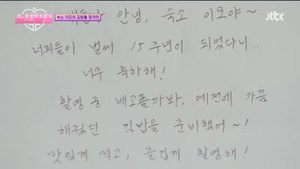 숙소 이모의 김밥을 찾아라
jtbc
안녕, 숙소 이모야~
너희들이 벌써 15주년이 되었다니..
너무 축하해!
촬영 중 배고플까봐, 예전에 가끔
해줬던 김밥을 준비했어~!
맛있게 먹고, 즐겁게 촬영해!